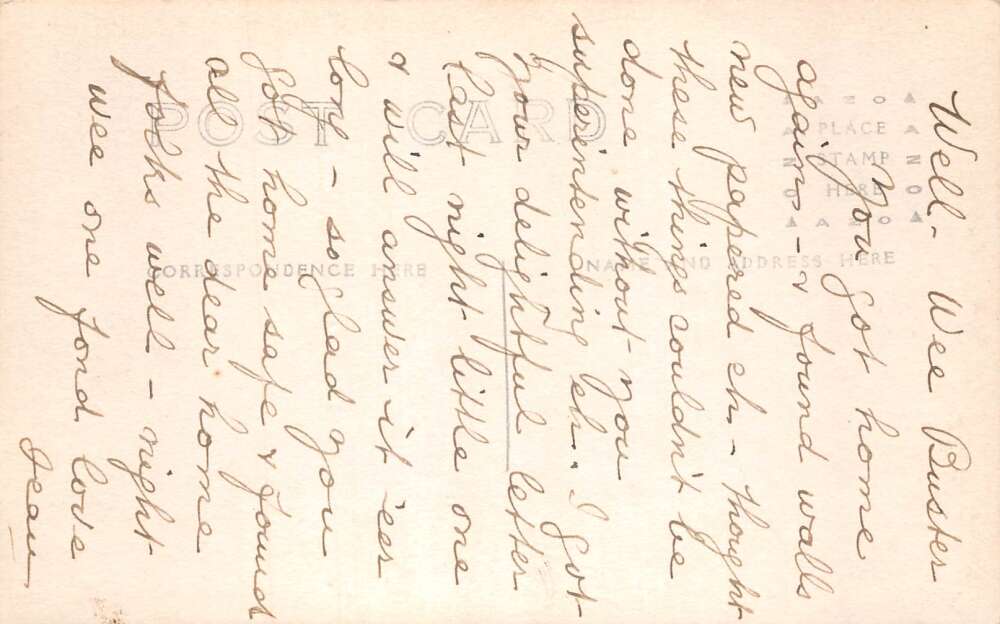 Well. - Wee Buster
You got home
again - & found walls
new papered eh. - thought
these things couldn't be
done without you
superintending eh.. I got
your delightful letter
last night little one
& will answer it 'ees
long - so glad you
got home safe & found
all the dear home
folks well - night
wee one fond love
Jean
POST CARD
CORRESPONDENCE HERE
NAME AND ADDRESS HERE
AZO
PLACE
STAMP
HERE
AZO